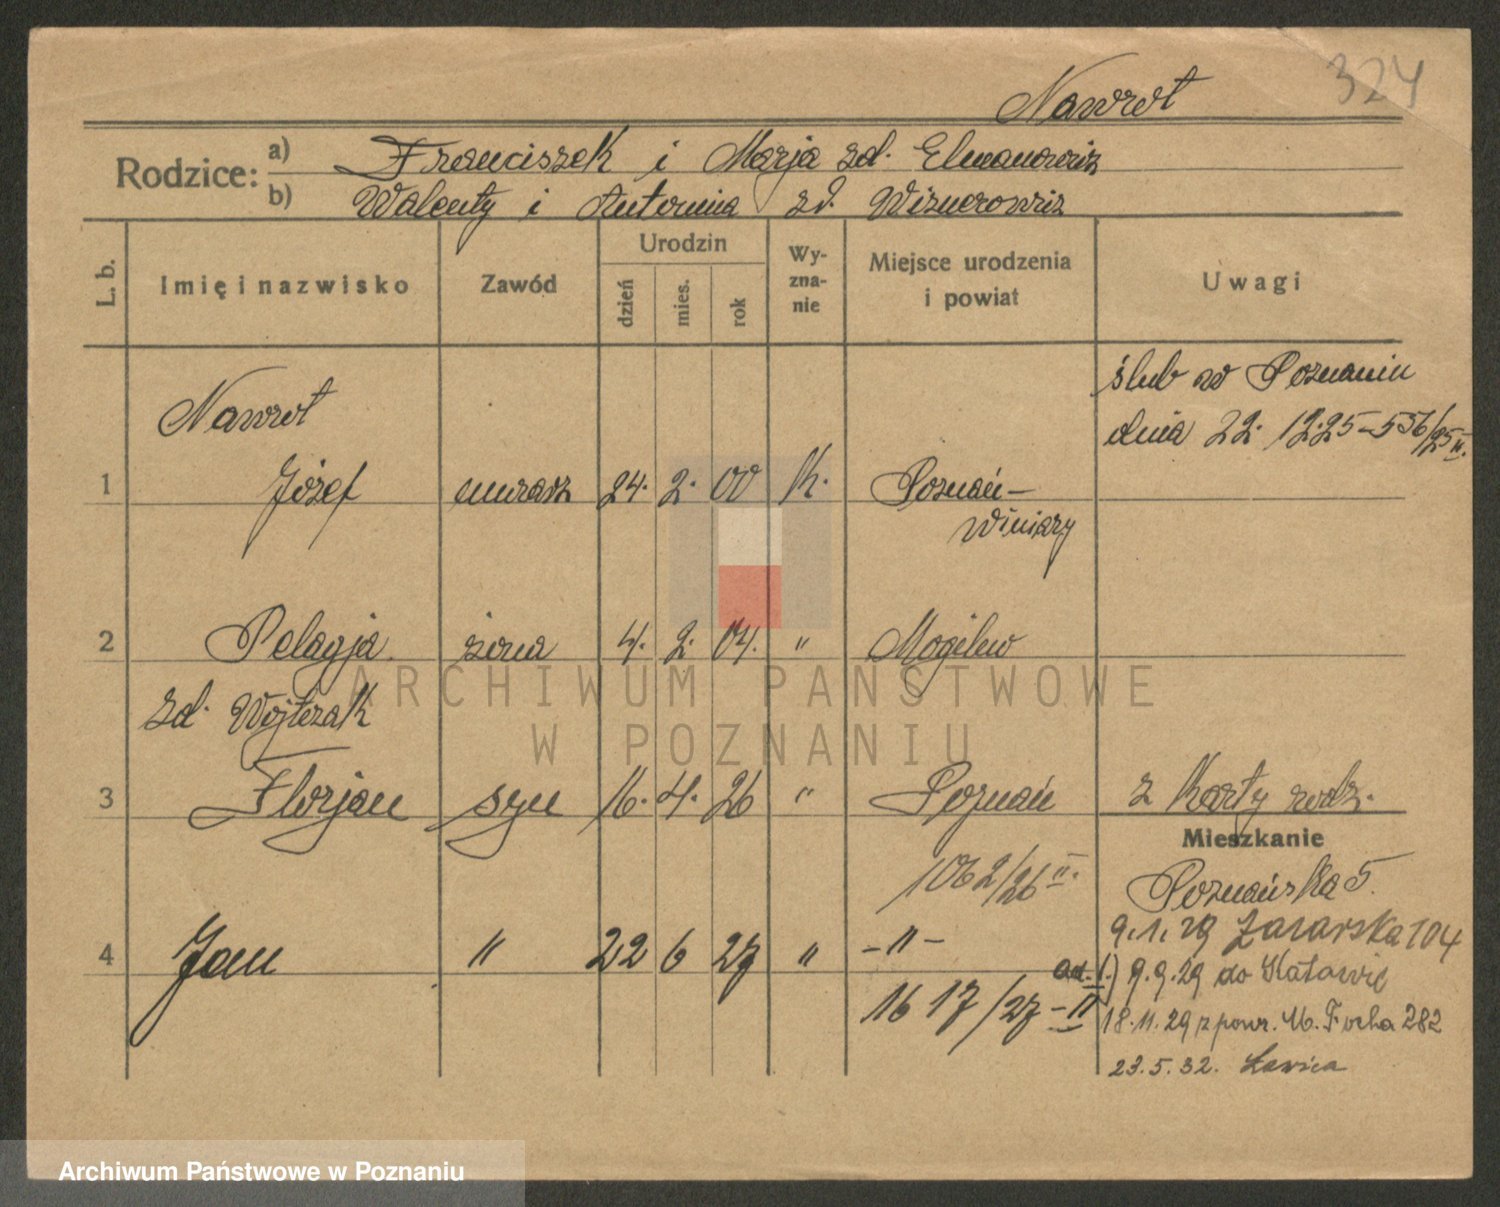 324
Nawrot
Rodzice: a) Franciszek i Marja zd. Elmanowicz
b) Walenty i Antonina zd. Wiznerowicz
L. b. Imię i nazwisko Zawód Urodzin dzień mies. rok Wy-zna-nie Miejsce urodzenia i powiat Uwagi
ślub w Poznaniu
dnia 22. 12.25 - 556/25 II.
Nawrot
1 Józef murarz 24. 2. 00 k. Poznań -
Winiary
2 Pelagja żona 4. 2. 04. " Mogilew
zd. Wojtczak
3 Florjan syn 16. 4. 26 " Poznań z Karty rodz.
1062/26 II.
Mieszkanie
Poznańska 5.
9.1.29 104
4 Jan " 22 6 27 " - " -
ad. 1.) 9.9.29 do Katowic
1617/27 - II
18.11.29 z powr. M. Focha 282
23.5.32. Ławica
ARCHIWUM PAŃSTWOWE
W POZNANIU
Archiwum Państwowe w Poznaniu